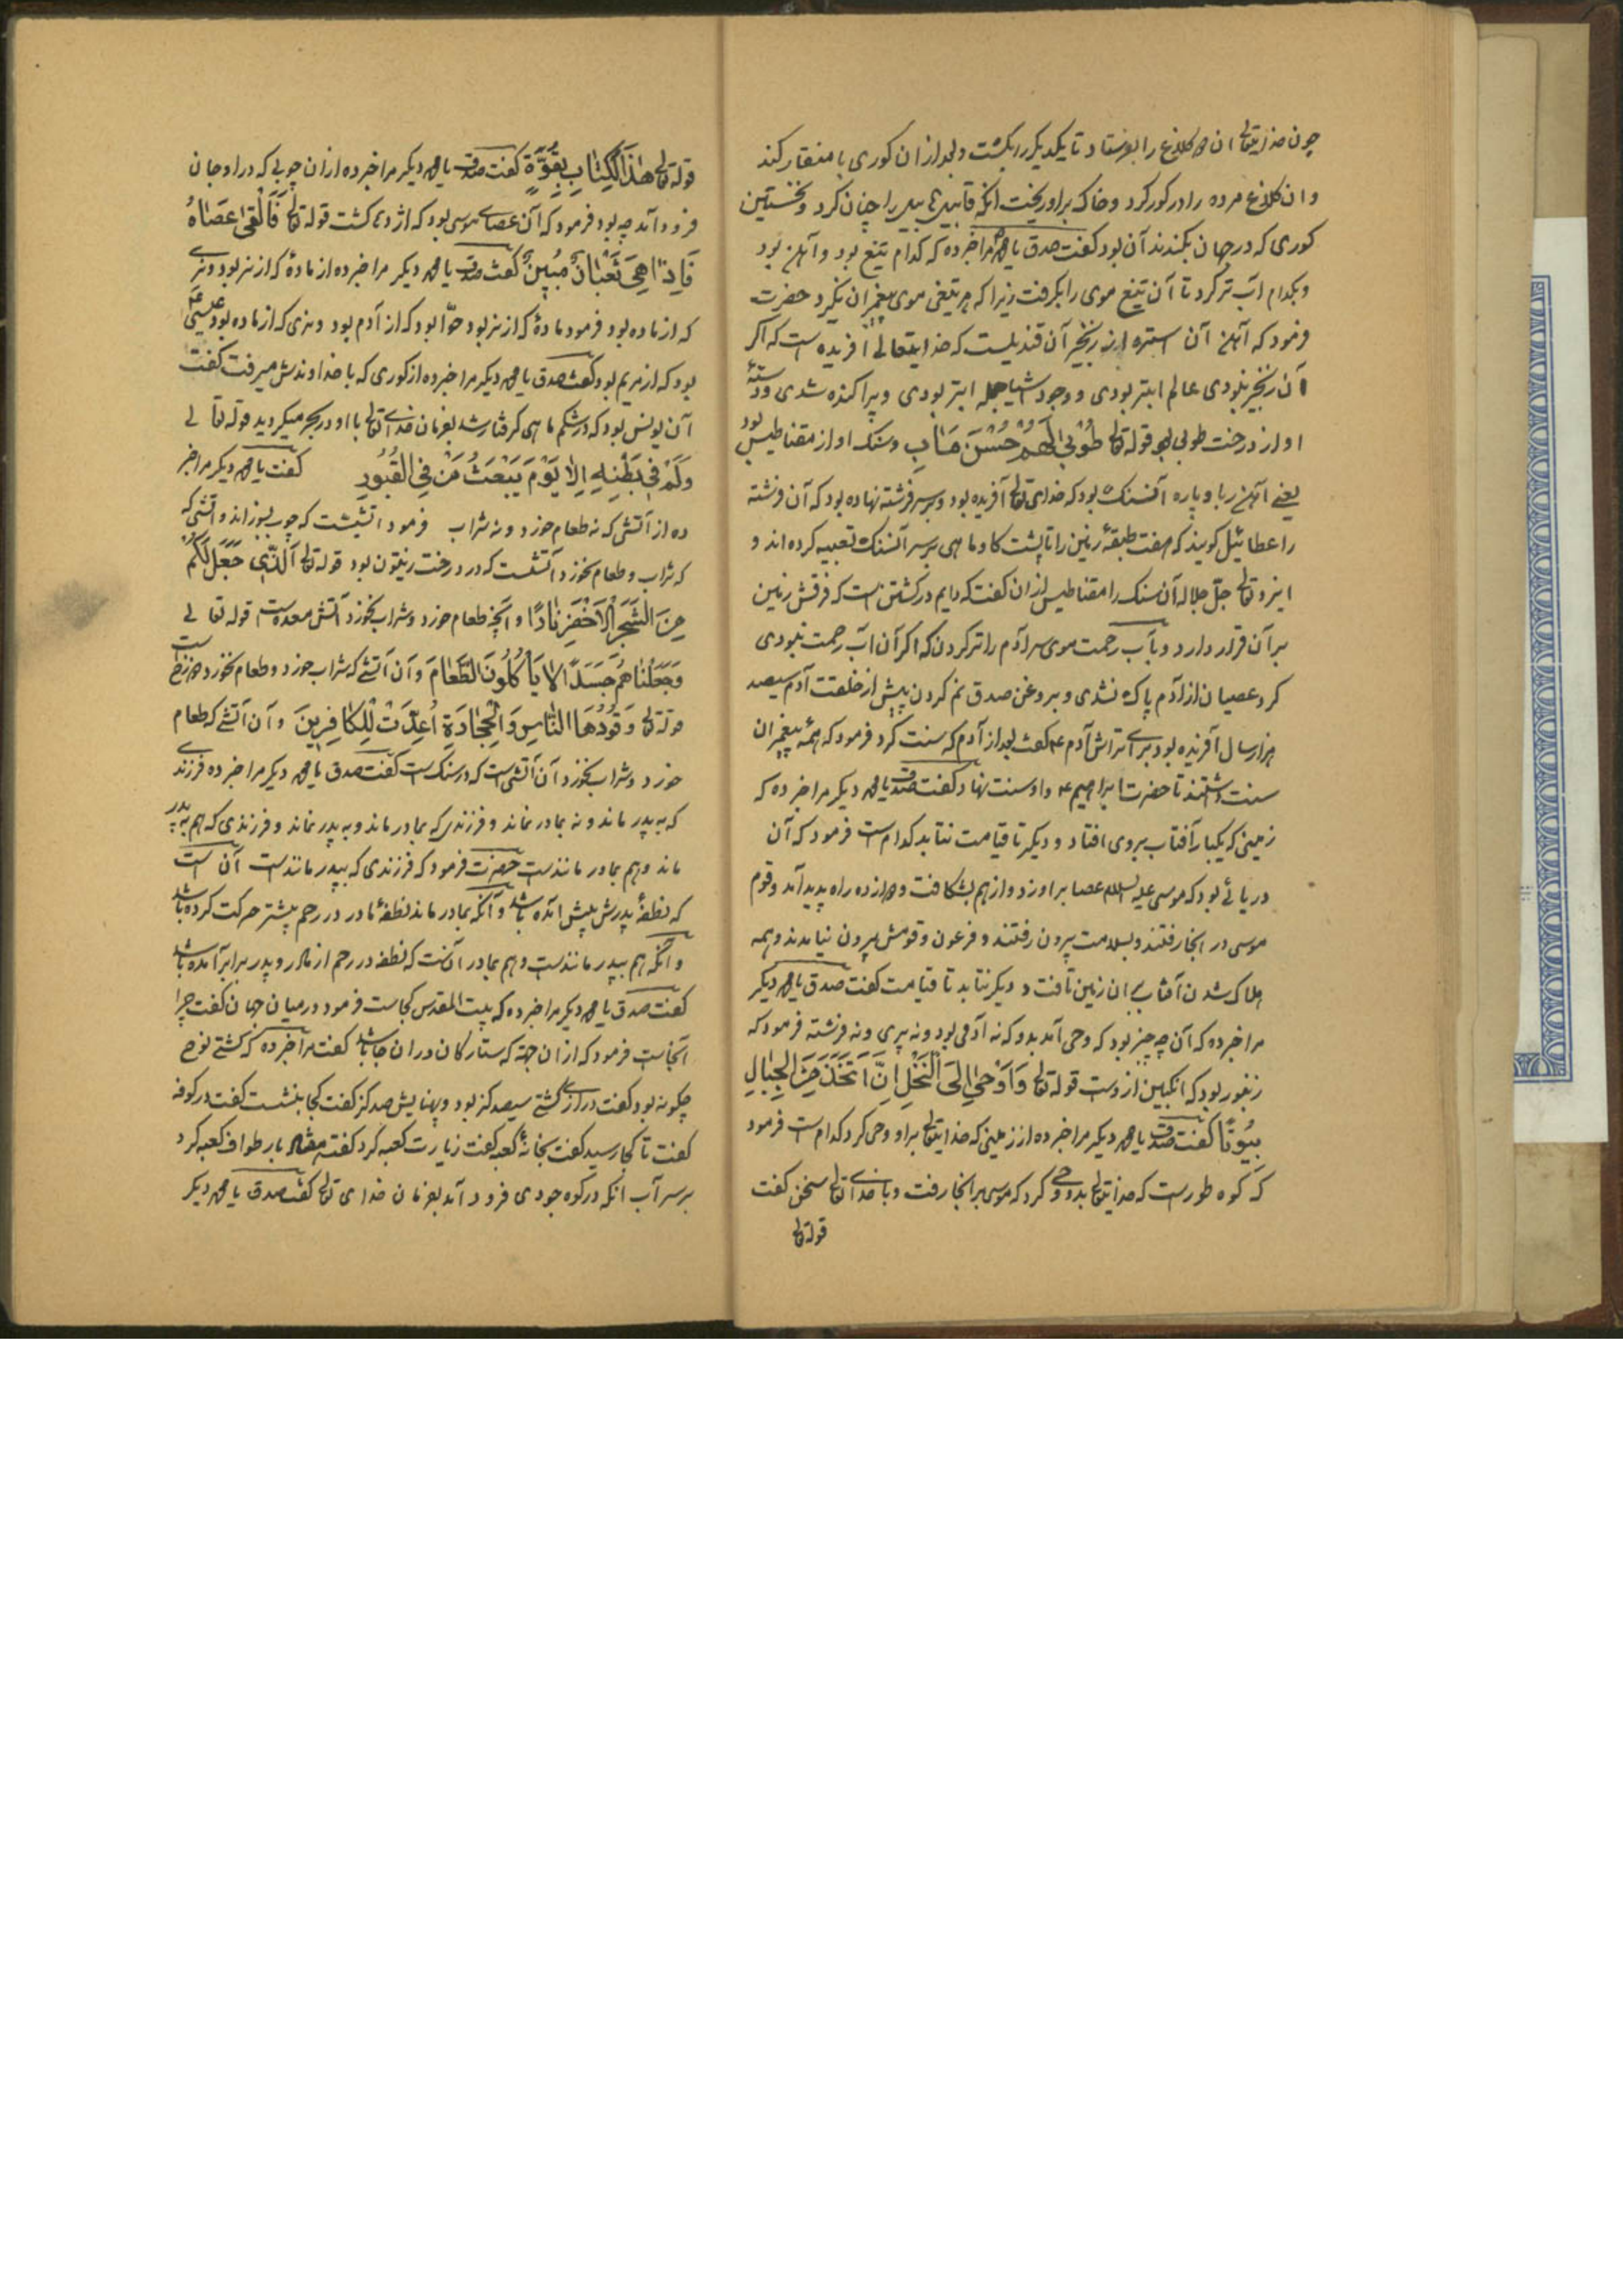 چون خدایتعالی ان دو کلاغ را بفرستاد تا یکدیکر را بکشت و بعد از ان کوری با منقار کند
و ان کلاغ مرده را در کور کرد و خاک بر او ریخت انکه قابیل هابیل را چنان کرد و نخستین
کوری که در جهان بکندند آن بود کفت صدق یا محمد مرا خبر ده که کدام تیغ بود و آهن بود
و بکدام آب تر کرد تا آن تیغ موی را بکرفت زیرا که هر تیغی موی پیغمبران نکیرد حضرت
فرمود که آهن آن استره از زنجیر آن قندیلست که خدایتعالی آفریده است که اکر
آن زنجیر نبودی عالم ابتر بودی و وجود اشیا جمله ابتر بودی و پراکنده شدی و دستهٔ
او از درخت طوبی بود قوله تعالی طُوبىٰ لَهُمْ حُسْنَ مَاٰبٍ و سنک او از مقناطیس بود
یعنی آهن ربا و پاره آنسنک بود که خدای تعالی آفریده بود و بر سر فرشته نهاده بود که آن فرشته
را عطائیل کویند که هفت طبقهٔ زمین را تا پشت کاو ماهی بر سر آنسنک تعبیه کرده اند و
ایزد تعالی جل جلاله آن سنک را مقناطیس از ان کفت که دایم در کشتن است که فرقش زمین
بر آن قرار دارد و بآب رحمت موی سر آدم را تر کردن که اکر آن آب رحمت نبودی
کرد عصیان از آدم پاک نشدی و بروغن صدق نم کردن پیش از خلقت آدم سیصد
هزار سال آفریده بود برای تراش آدم ع کفت بعد از آدم که سنت کرد فرمود که همه پیغمبران
سنت داشتند تا حضرت ابراهیم ع و او سنت نهاد کفت صدق یا محمد دیکر مرا خبر ده که
زمینی که یکبار آفتاب بروی افتاد و دیکر تا قیامت نتابد کدام است فرمود که آن
دریائی بود که موسی علیه السلام عصا بر او زد و از هم بشکافت و دوازده راه پدید آمد و قوم
موسی در انجا رفتند و بسلامت بیرون رفتند و فرعون و قومش بیرون نیامدند و همه
هلاک شدن آفتاب بان زمین تافت و دیکر نتابد تا قیامت کفت صدق یا محمد دیکر
مرا خبر ده که آن چه چیز بود که وحی آمد بدو که نه آدمی بود و نه پری و نه فرشته فرمود که
زنبور بود که انکبین از وست قوله تعالی وَاَوْحىٰ اِلَى النَّحْلِ اِنَّ اتَّخَذَ مِنَ الْجِبٰالِ
بُيُوتًا کفت صدق یا محمد دیکر مرا خبر ده از زمینی که خدایتعالی براو وحی کرد کدام است فرمود
که کوه طورست که خدایتعالی بدو وحی کرد که موسی بر انجا رفت و با خدای تعالی سخن کفت
قوله تعالی
قوله تعالی هٰذَا الْكِتٰابِ بِقُوَّةٍ کفت صدق یا محمد دیکر مرا خبر ده از ان چوبی که در او جان
فرود آمد چه بود فرمود که آن عصای موسی بود که اژدها کشت قوله تعالی فَاَلْقىٰ عَصٰاهُ
فَاِذٰا هِىَ ثُعْبٰانٌ مُبِينٌ کفت صدق یا محمد دیکر مرا خبر ده از مادهٔ که از نر بود و نری
که از ماده بود فرمود مادهٔ که از نر بود حوّا بود که از آدم بود و نری که از ماده بود عیسی ع
بود که از مریم بود کفت صدق یا محمد دیکر مرا خبر ده از کوری که با خداوندش میرفت کفت
آن یونس بود که در شکم ماهی کرفتار شد بفرمان خدای تعالی با او در بحر میکردید قوله تعالی
وَلَمْ فِى بَطْنِهِ اِلاٰ يَوْمَ يَبْعَثُ مَنْ فِى الْقُبُورِ کفت یا محمد دیکر مرا خبر
ده از آتشی که نه طعام خورد و نه شراب فرمود اتشیست که چوب بسوزاند و آتشی که
که شراب و طعام نخورد آتشست که در درخت زیتون بود قوله تعالی اَلَّذِى جَعَلَ لَكُمْ
مِنَ الشَّجَرِ الْاَخْضَرِ نٰارًا و آنچه طعام خورد و شراب نخورد آتش معده است قوله تعالی
وَجَعَلْنٰاهُمْ جَسَدًا لاٰ يَأْكُلُونَ الطَّعٰامَ و آن آتشی که شراب خورد و طعام نخورد دوزخ است
قوله تعالی وَقُودُهَا النّٰاسِ وَالْحِجٰارَةِ اُعِدَّتْ لِلْكٰافِرِينَ و آن آتشی که طعام
خورد و شراب نخورد آن آتشی است که در سنک است کفت صدق یا محمد دیکر مرا خبر ده فرزندی
که به پدر ماند و نه بمادر نماند و فرزندی که بمادر ماند و به پدر نماند و فرزندی که هم به پدر
ماند و هم بمادر مانندست حضرت فرمود که فرزندی که بپدر مانندست آن است
که نطفهٔ پدرش پیش آمده باشد و آنکه بمادر ماند نطفهٔ مادر در رحم پیشتر حرکت کرده باشد
و آنکه هم بپدر مانندست و هم بمادر آنست که نطفه در رحم از مادر و پدر برابر آمده باشد
کفت صدق یا محمد دیکر مرا خبر ده که بیت المقدس کجاست فرمود در میان جهان کفت چرا
آنجاست فرمود که از ان جهة که ستارکان در ان جا باشد کفت مرا خبر ده که کشتی نوح
چکونه بود کفت درازی کشتی سیصد کز بود و پهنایش صد کز کفت کجا بنشست کفت در کوفه
کفت تا کجا رسید کفت بخانهٔ کعبه کفت زیارت کعبه کرد کفت هفتاد بار طواف کعبه کرد
بر سر آب انکه در کوه جودی فرود آمد بفرمان خدای تعالی کفت صدق یا محمد دیکر